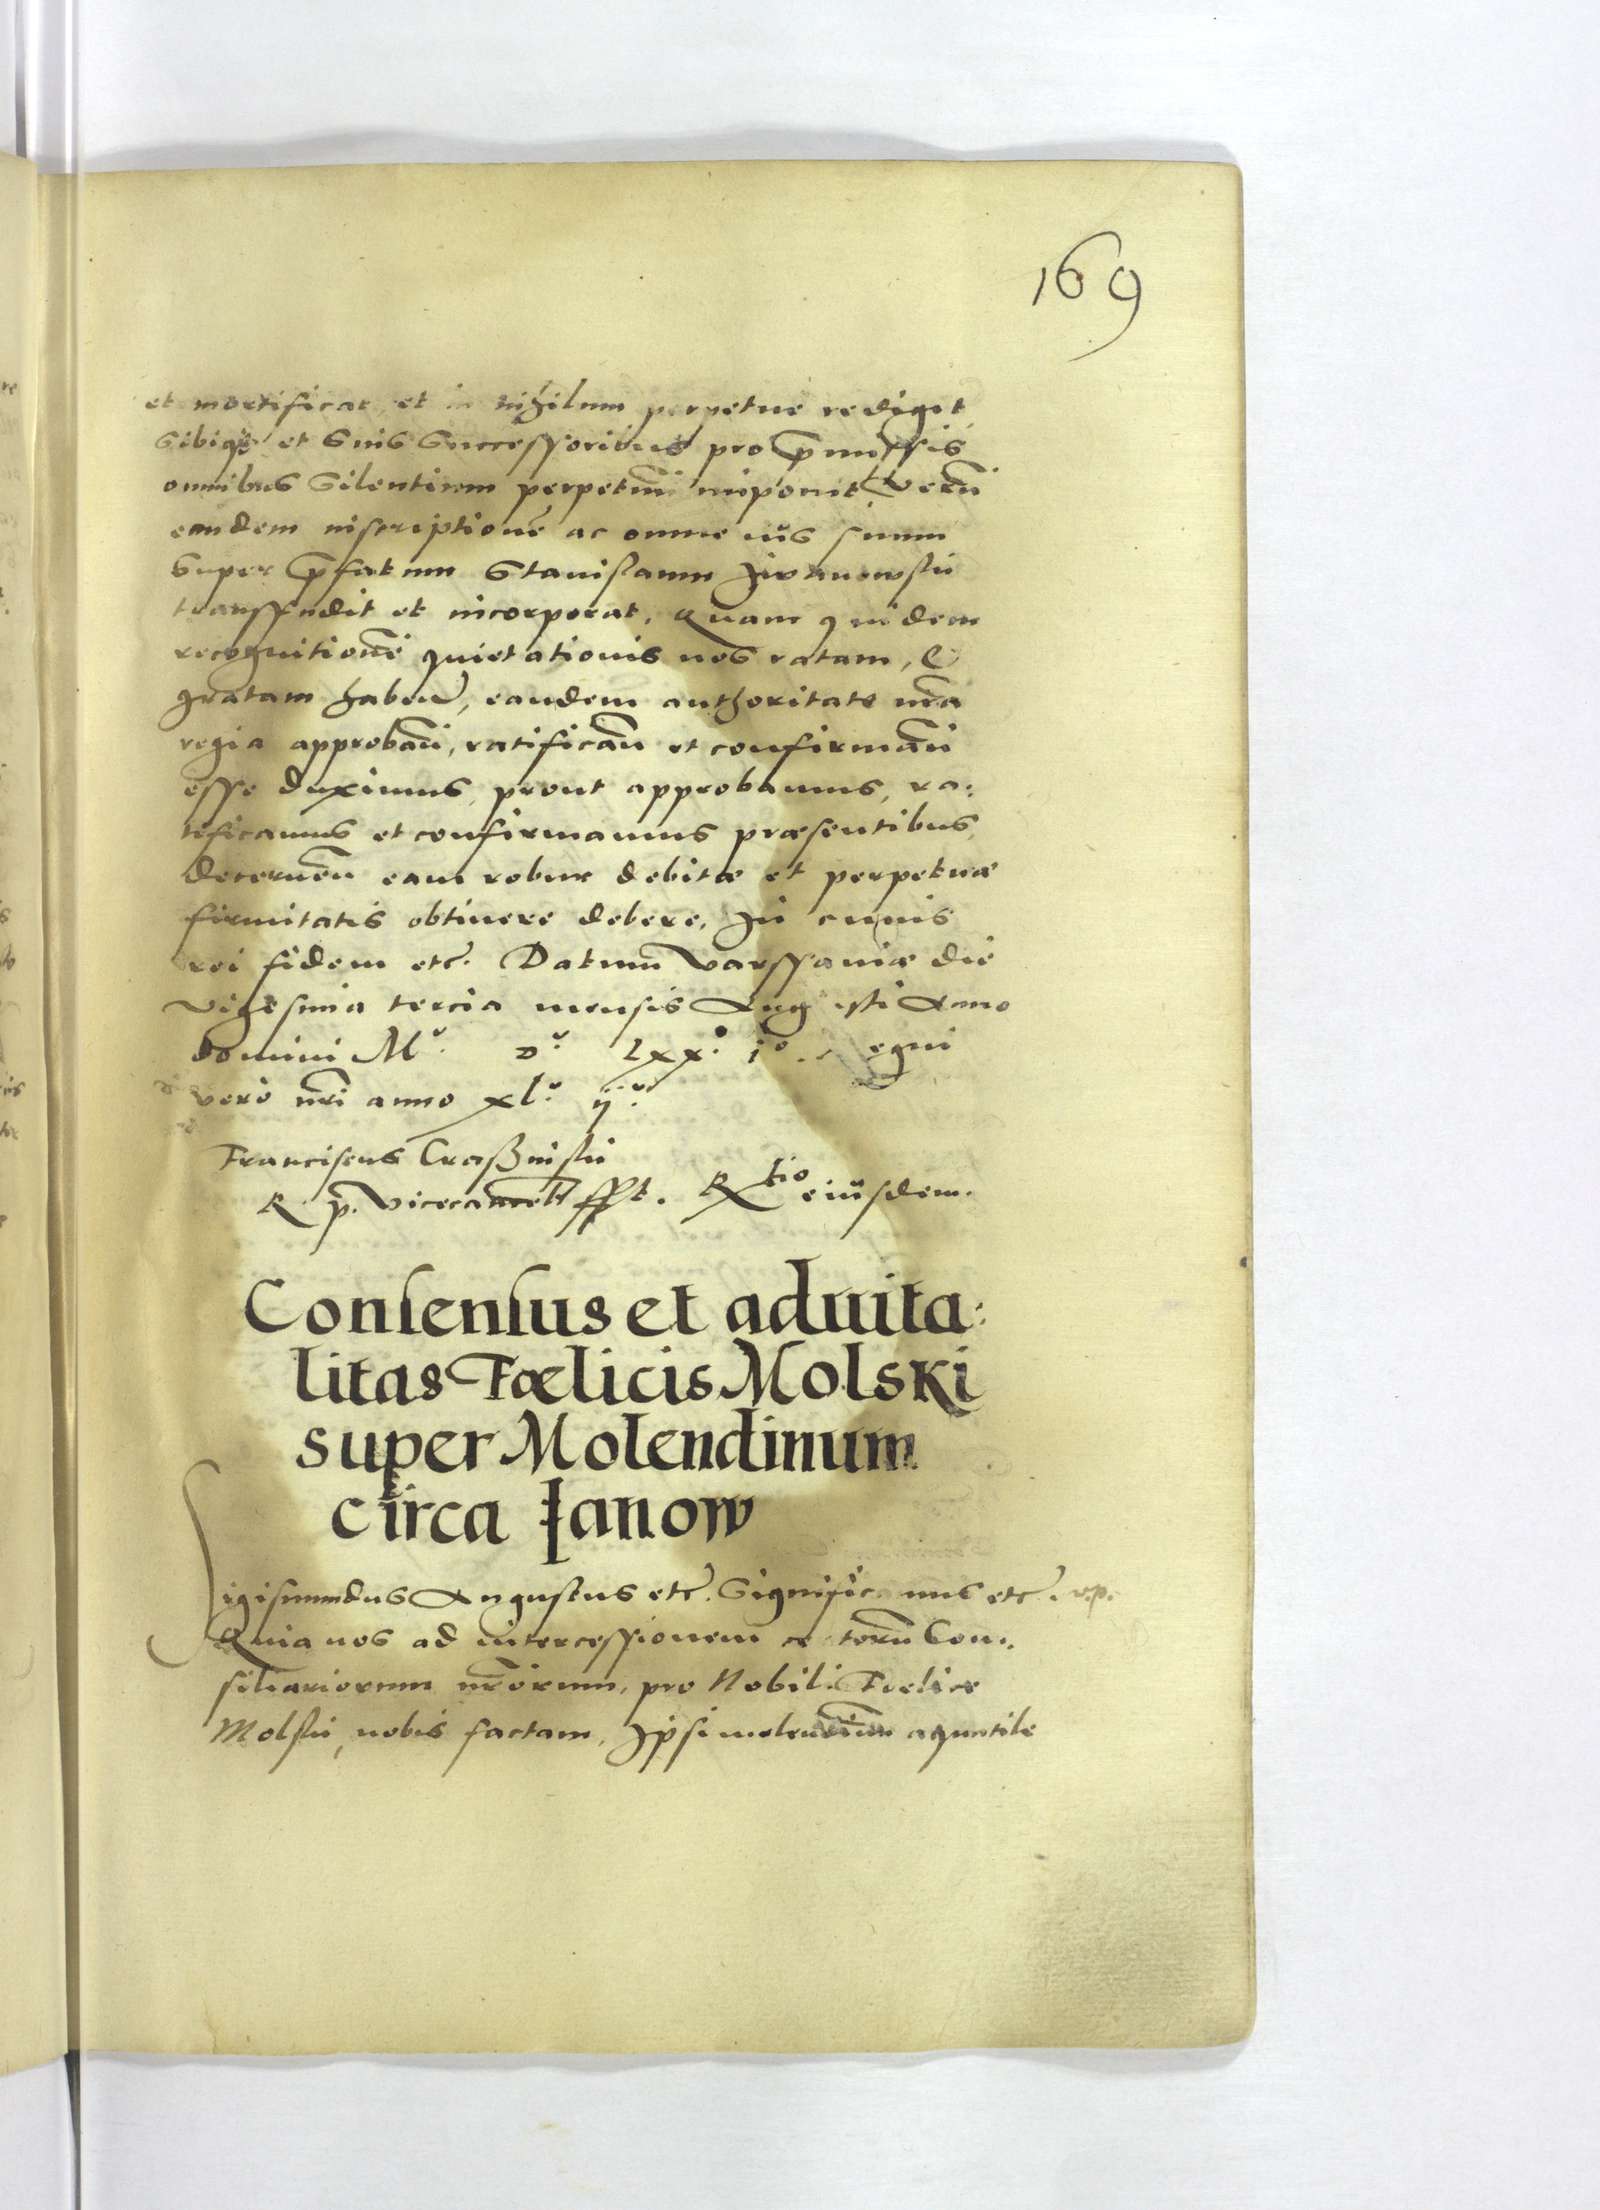 169
et mortificat et in nihilum perpetue redigit
Sibiq3 et Suis Successoribus pro p̄missis
omnibus Silentium perpetuū imponit Verū
eandem inscriptionē ac omne ius suum
Super p̄fatum Stanislaum
transfundit et incorporat. Quam quidem
recognitionē quietationis nos ratam, &
gratam haben̄, eandem authoritate nr̄a
regia approbān, ratificān et confirmān
esse duximus, prout approbamus, ra:
tificamus et confirmamus præsentibus,
decernēn eam robur debitæ et perpetuæ
firmitatis obtinere debere. In cuius
rei fidem etc. Datum Varssaviæ die
vigesima tercia mensis Augusti Anno
domini Mo. Do. Lxxo. io. Regni
vero nr̄i anno xlo. ijo.
Franciscus Craßinski
R. p. Vicecancell sst. R tio eiusdem.
Consensus et advita:
litas Fœlicis Molski
super Molendinum
circa Janow
Sigismundus Augustus etc. Significamus etc. v.p.
Quia nos ad intercessionem certorū Con:
siliariorum nr̄orum, pro Nobili Fœlice
Molski, nobis factam, Ipsi molendinum aquatile